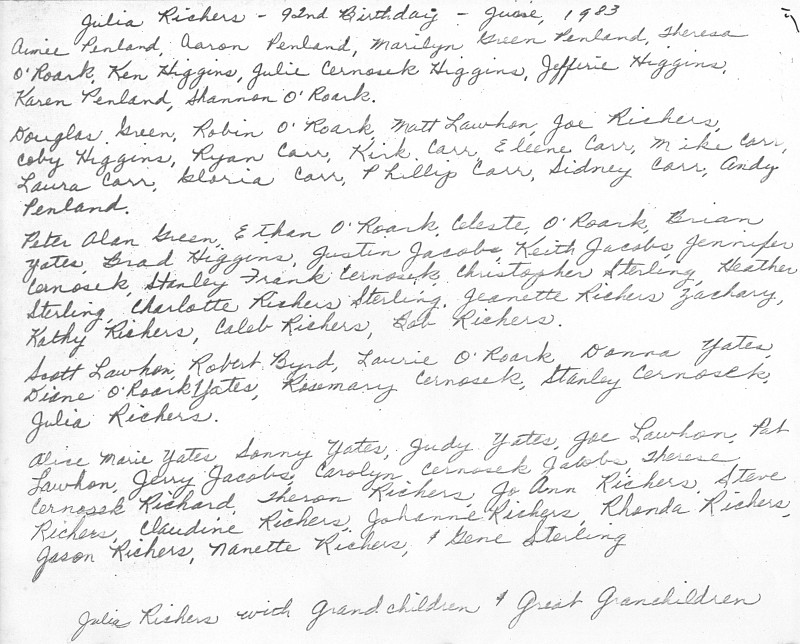 Julia Richers - 92nd Birthday - June, 1983
Aimee Penland, Aaron Penland, Marilyn Green Penland, Theresa
O'Roark, Ken Higgins, Julie Cernosek Higgins, Jefferie Higgins,
Karen Penland, Shannon O'Roark.
Douglas Green, Robin O'Roark, Matt Lawhon, Joe Richers,
Coby Higgins, Ryan Carr, Kirk Carr, Eleene Carr, Mike Carr,
Laura Carr, Gloria Carr, Phillip Carr, Sidney Carr, Andy
Penland.
Peter Alan Green, Ethan O'Roark, Celeste, O'Roark, Brian
Yates, Brad Higgins, Justin Jacobs, Keith Jacobs, Jennifer
Cernosek, Stanley Frank Cernosek, Christopher Sterling, Heather
Sterling, Charlotte Richers Sterling, Jeanette Richers Zachary,
Kathy Richers, Caleb Richers, Bob Richers.
Scott Lawhon, Robert Byrd, Laurie O'Roark, Donna Yates,
Diane O'Roark Yates, Rosemary Cernosek, Stanley Cernosek,
Julia Richers.
Alice Marie Yates, Sonny Yates, Judy Yates, Joe Lawhon, Pat
Lawhon, Jerry Jacobs, Carolyn Cernosek Jacobs, Therese
Cernosek Richard, Theron Richers, Jo Ann Richers, Steve
Richers, Claudine Richers, Johanne Richers, Rhonda Richers,
Jason Richers, Nanette Richers, & Gene Sterling
Julia Richers with Grandchildren & Great Granchildren